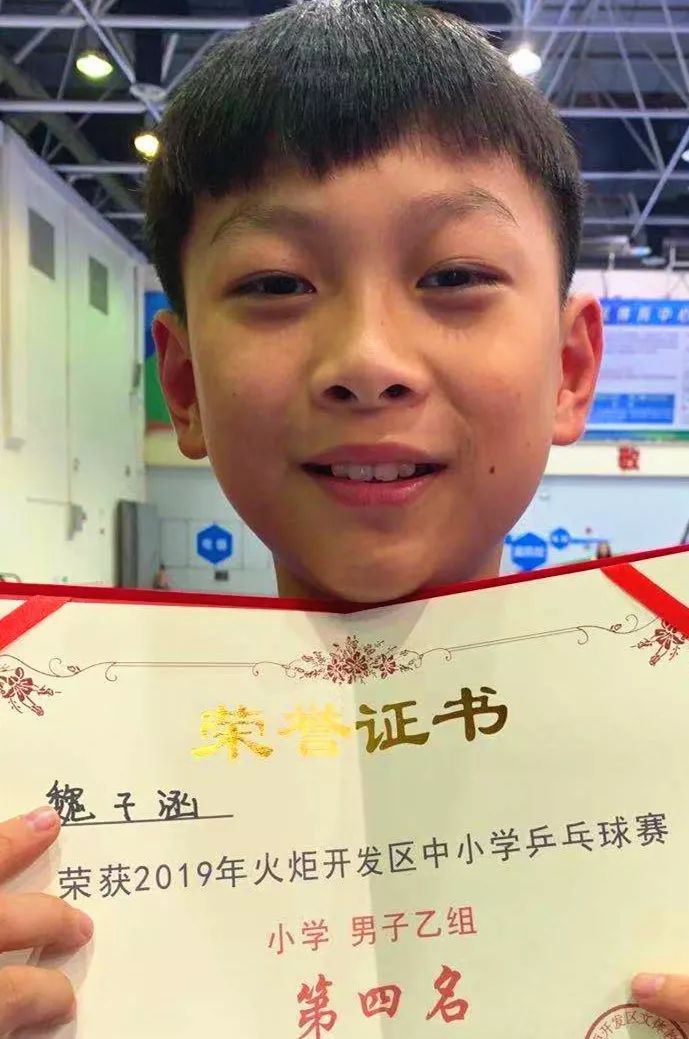 敬
荣誉证书
魏子涵
荣获2019年火炬开发区中小学乒乓球赛
小学 男子乙组
第四名
开发区文体